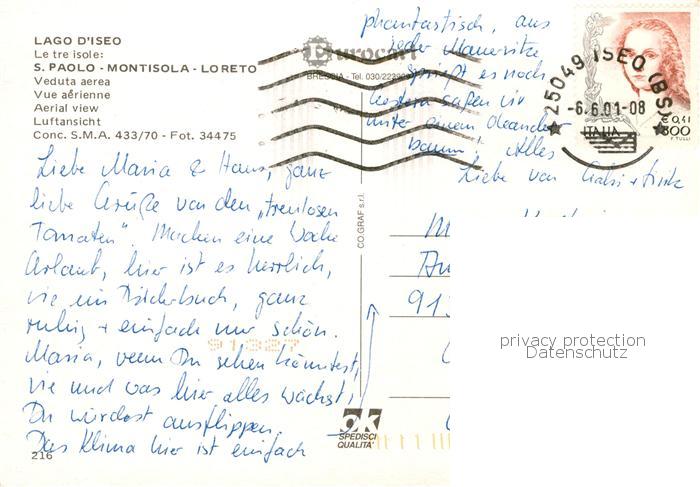 LAGO D'ISEO
Le tre isole:
S. PAOLO - MONTISOLA - LORETO
Veduta aerea
Vue aérienne
Aerial view
Luftansicht
Conc. S.M.A. 433/70 - Fot. 34475
Eurocart
BRESCIA - Tel. 030/22290
25049 ISEO (BS)
-6.6.01-08
ITALIA
€ 0,41
800
F. TULLI
Liebe Maria & Hans, ganz
liebe Grüße von den „treulosen
Tomaten". Machen eine Woche
Urlaub, hier ist es herrlich,
wie im Bilderbuch, ganz
ruhig + einfach nur schön.
Maria, wenn Du sehen könntest,
wie und was hier alles wächst,
Du würdest ausflippen.
Das Klima hier ist einfach
phantastisch, aus
jeder Mauerritze
sprießt es noch
Gestern saßen wir
unter einem Oleander
baum! Alles
Liebe von Gabi +
CO.GRAF s.r.l.
91327
91
OK
SPEDISCI
QUALITA'
216
privacy protection
Datenschutz